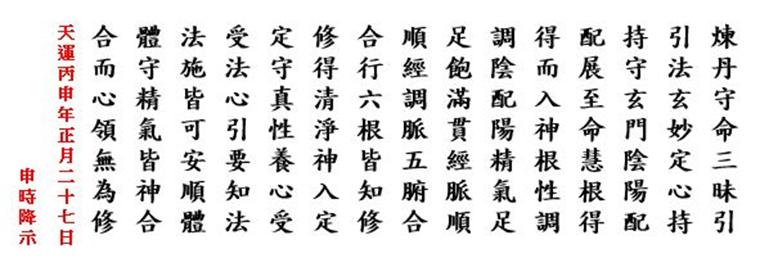 煉丹守命三昧引
引法玄妙定心持
持守玄門陰陽配
配展至命慧根得
得而入神根性調
調陰配陽精氣足
足飽滿貫經脈順
順經調脈五腑合
合行六根皆知修
修得清淨神入定
定守真性養心受
受法心引要知法
法施皆可安順體
體守精氣皆神合
合而心領無為修
天運丙申年正月二十七日
申時降示